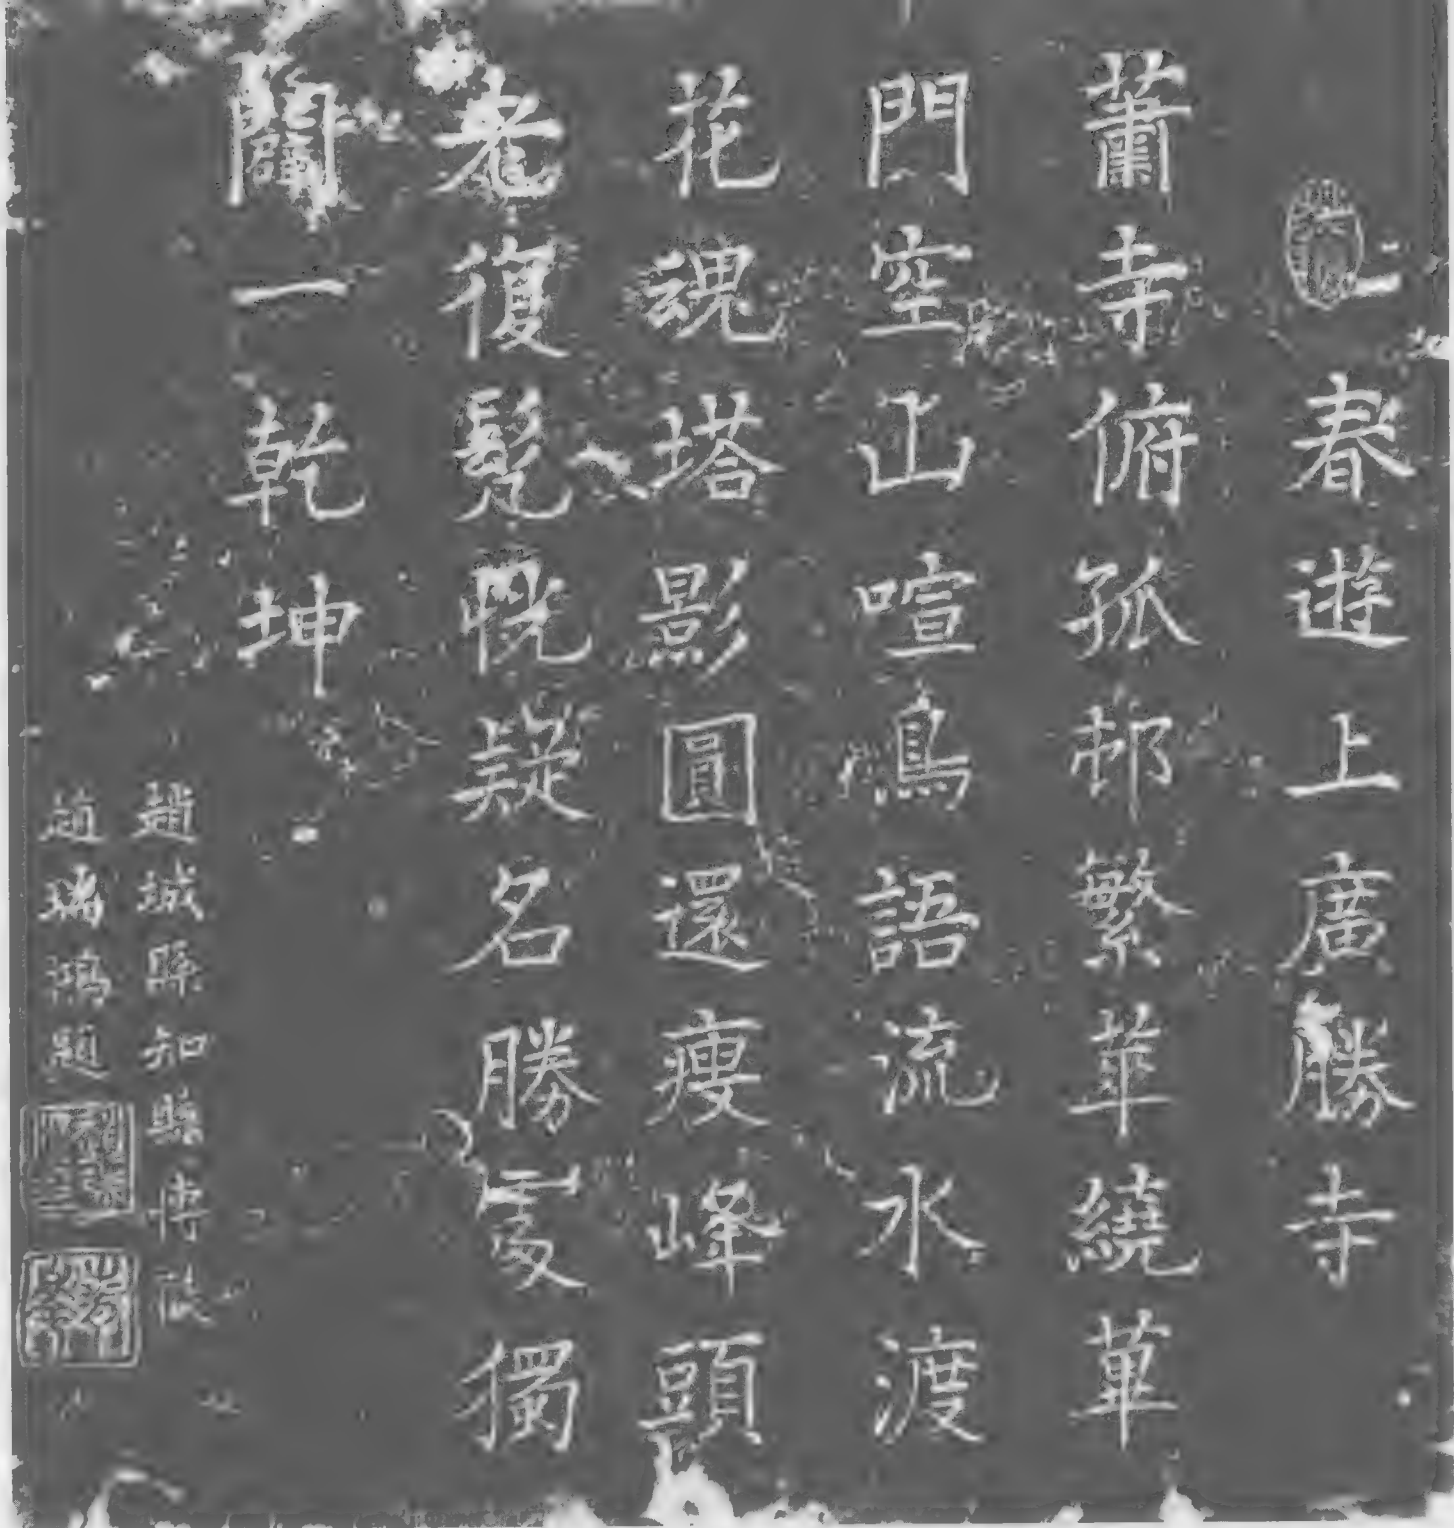 春遊上廣勝寺
蕭寺俯孤邨繁華繞華
門空山喧鳥語流水渡
花魂塔影圓還瘦峰頭
老復髡恍疑名勝處獨
闢一乾坤
趙城縣知縣博
趙瑞鴻題